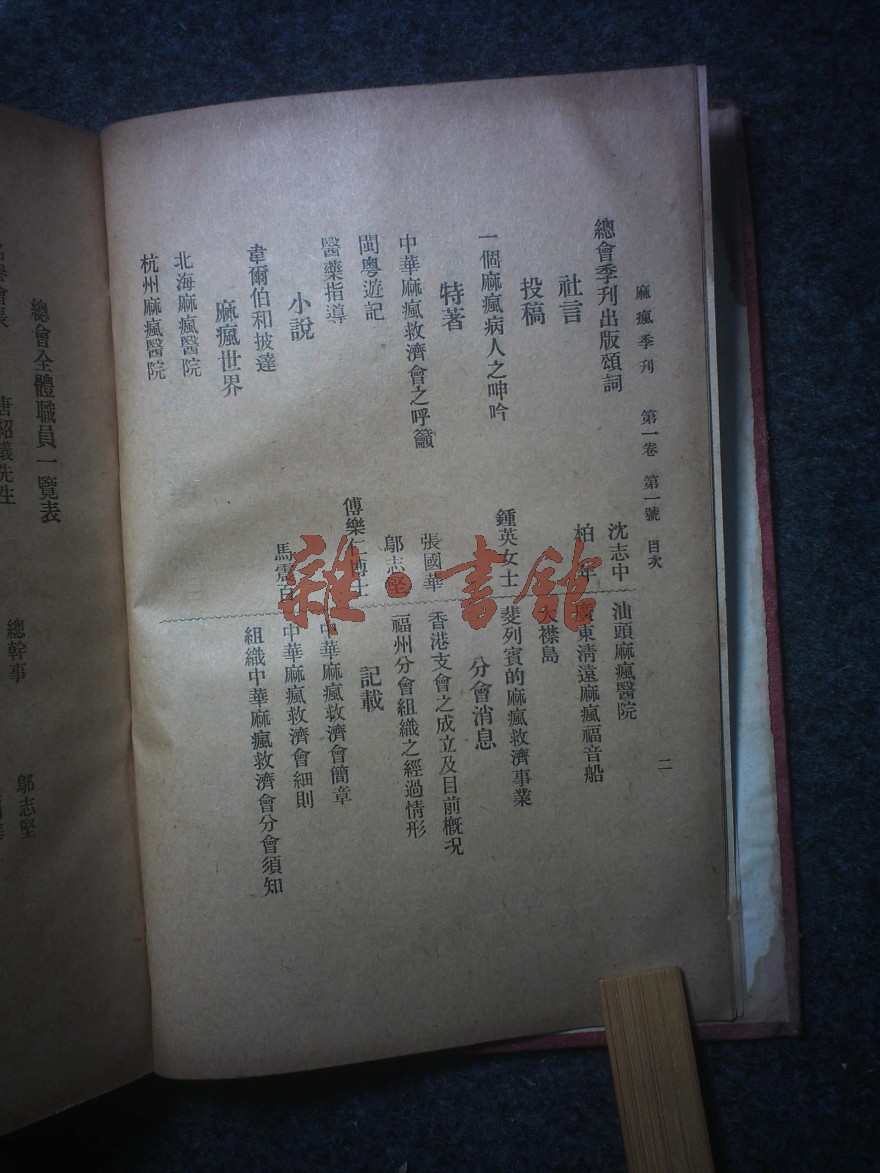 麻瘋季刊 第一卷 第一號 目次 二
總會季刊出版頌詞 沈志中
社言 柏年
投稿
一個麻瘋病人之呻吟 鍾英女士
特著
中華麻瘋救濟會之呼籲 張國華
閩粵遊記 鄔志堅
醫藥指導 傅樂仁博士
小說
韋爾伯和披達 馬震百
麻瘋世界
北海麻瘋醫院
杭州麻瘋醫院
汕頭麻瘋醫院
廣東清遠麻瘋福音船
大襟島
斐列賓的麻瘋救濟事業
分會消息
香港支會之成立及目前概况
福州分會組織之經過情形
記載
中華麻瘋救濟會簡章
中華麻瘋救濟會細則
組織中華麻瘋救濟會分會須知
總會全體職員一覽表
名譽會長 唐紹儀先生
總幹事 鄔志堅
雜·書館